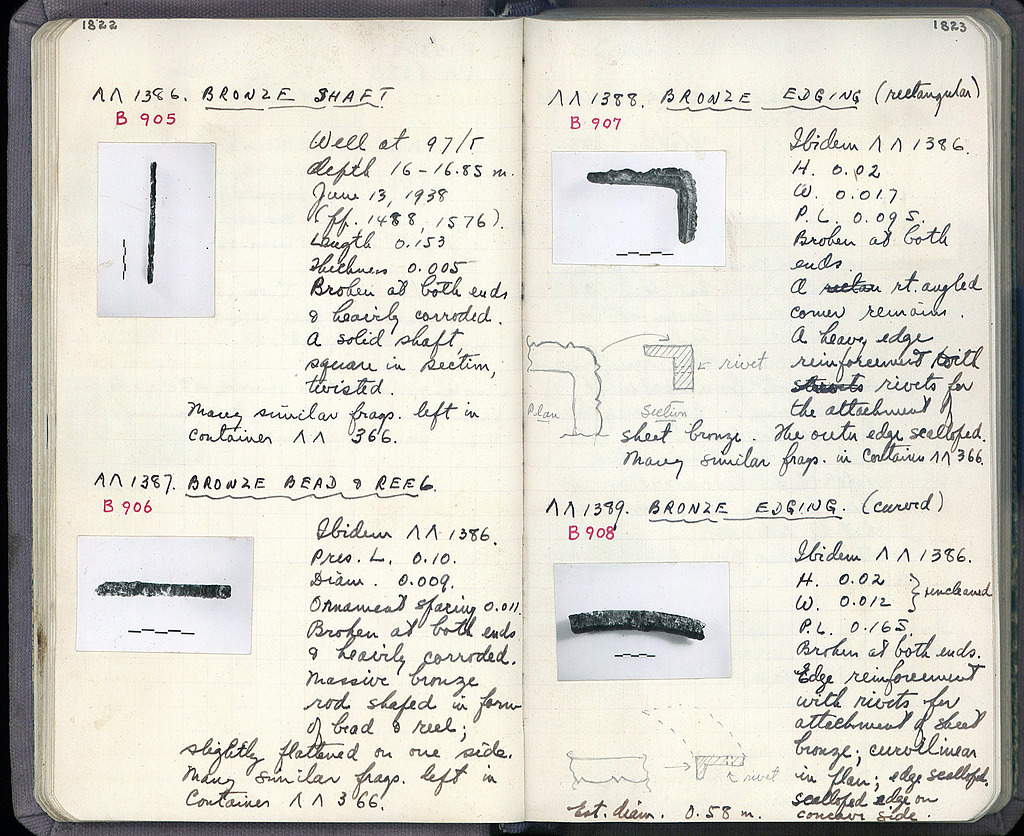 1822
ΛΛ 1386. BRONZE SHAFT
B 905
Well at 97/Γ
depth 16-16.85 m.
June 13, 1938
(ff. 1488, 1576).
Length 0.153
Thickness 0.005
Broken at both ends
& heavily corroded.
A solid shaft,
square in section,
twisted.
Many similar frags. left in
container ΛΛ 366.
ΛΛ 1387. BRONZE BEAD & REEL.
B 906
Ibidem ΛΛ 1386.
Pres. L. 0.10.
Diam. 0.009.
Ornament spacing 0.011.
Broken at both ends
& heavily corroded.
Massive bronze
rod shaped in form
of bead & reel;
slightly flattened on one side.
Many similar frags. left in
Container ΛΛ 366.
1823
ΛΛ 1388. BRONZE EDGING (rectangular)
B 907
Ibidem ΛΛ 1386.
H. 0.02
W. 0.017
P.L. 0.095.
Broken at both
ends.
A rectan rt. angled
corner remains.
A heavy edge
reinforcement with
rivets for
the attachment of
sheet bronze. The outer edge scalloped.
Many similar frags. in Container ΛΛ 366.
Plan
Section
← rivet
ΛΛ 1389. BRONZE EDGING. (curved)
B 908
Ibidem ΛΛ 1386.
H. 0.02
W. 0.012 } uncleaned
P.L. 0.165.
Broken at both ends.
Edge reinforcement
with rivets for
attachment of sheet
bronze; curvilinear
in plan; edge scalloped.
scalloped edge on
concave side.
rivet
Est. diam. 0.58 m.